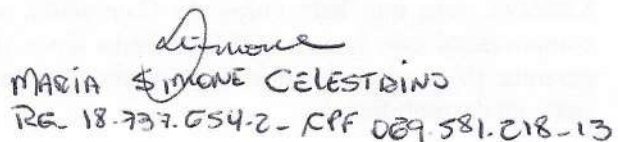 Simone
MARIA SIMONE CELESTRINO
RG_ 18.737.654-2_ CPF 069.581.218_13